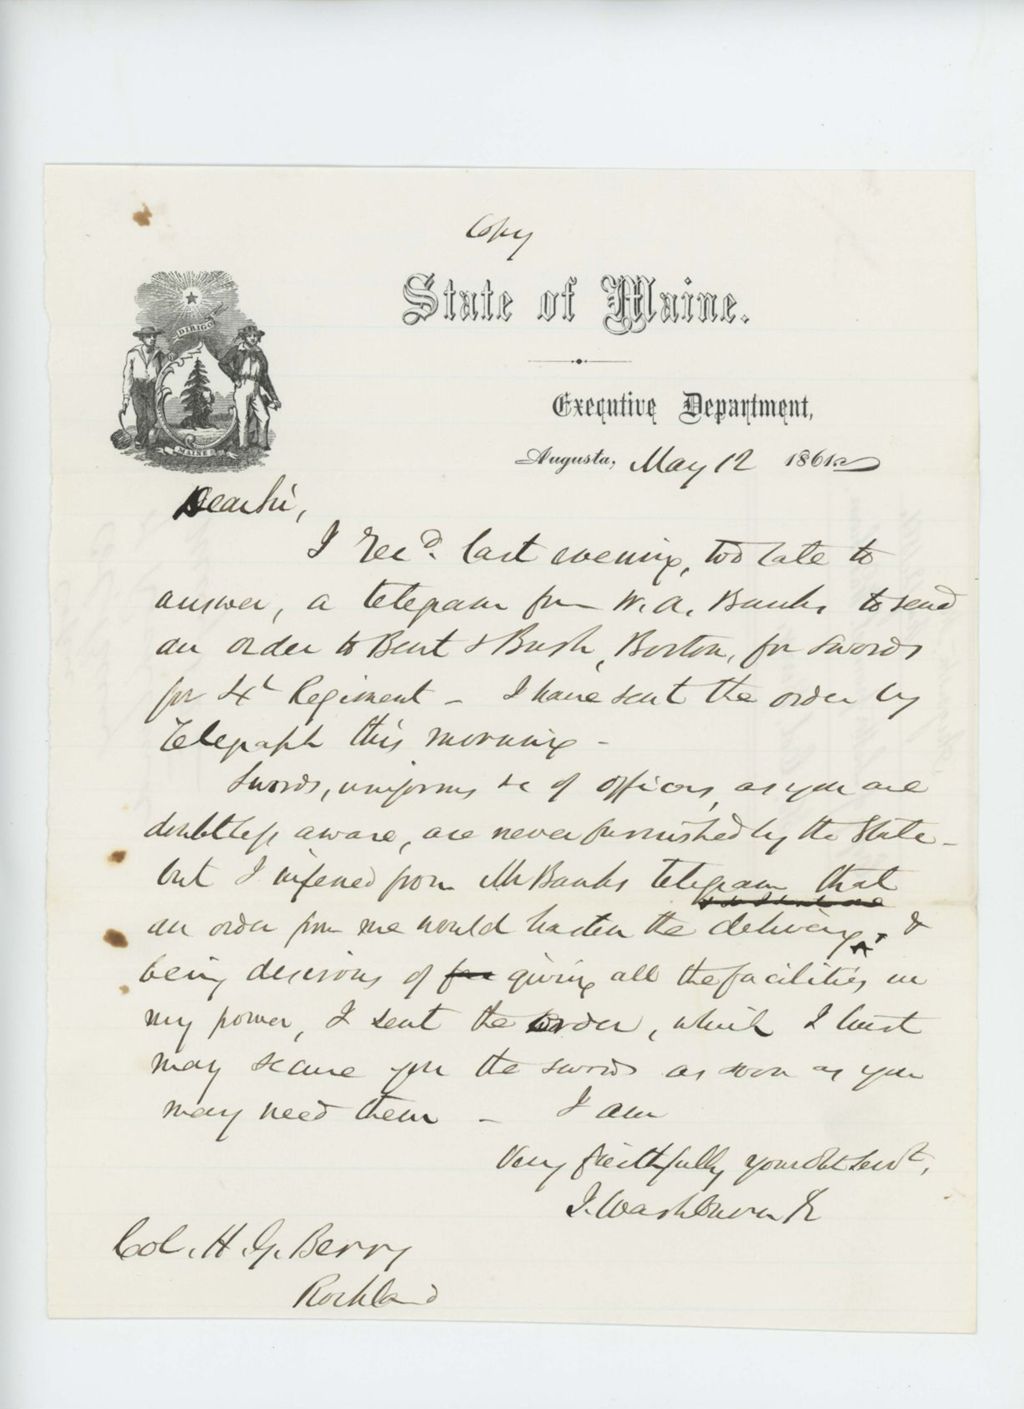 Copy
State of Maine.
DIRIGO
MAINE
Executive Department,
Augusta, May 12 1861
Dear Sir,
I Rec^d. last evening, too late to
answer, a telegram from W. A. Banks to send
an order to Bent & Bush, Boston, for swords
for 4^t Regiment - I have sent the order by
Telegraph this morning -
Swords, uniforms &c of officers, as you are
doubtless aware, are never furnished by the State -
but I inferred from Mr Banks telegram that
an order from me would hasten the delivery, &
being desirous of for giving all the facilities in
my power, I sent the order, which I trust
may secure you the swords as soon as you
may need them - I am
Very faithfully your Obt Servt,
I. Washburn Jr
Col. H. G. Berry
Rockland